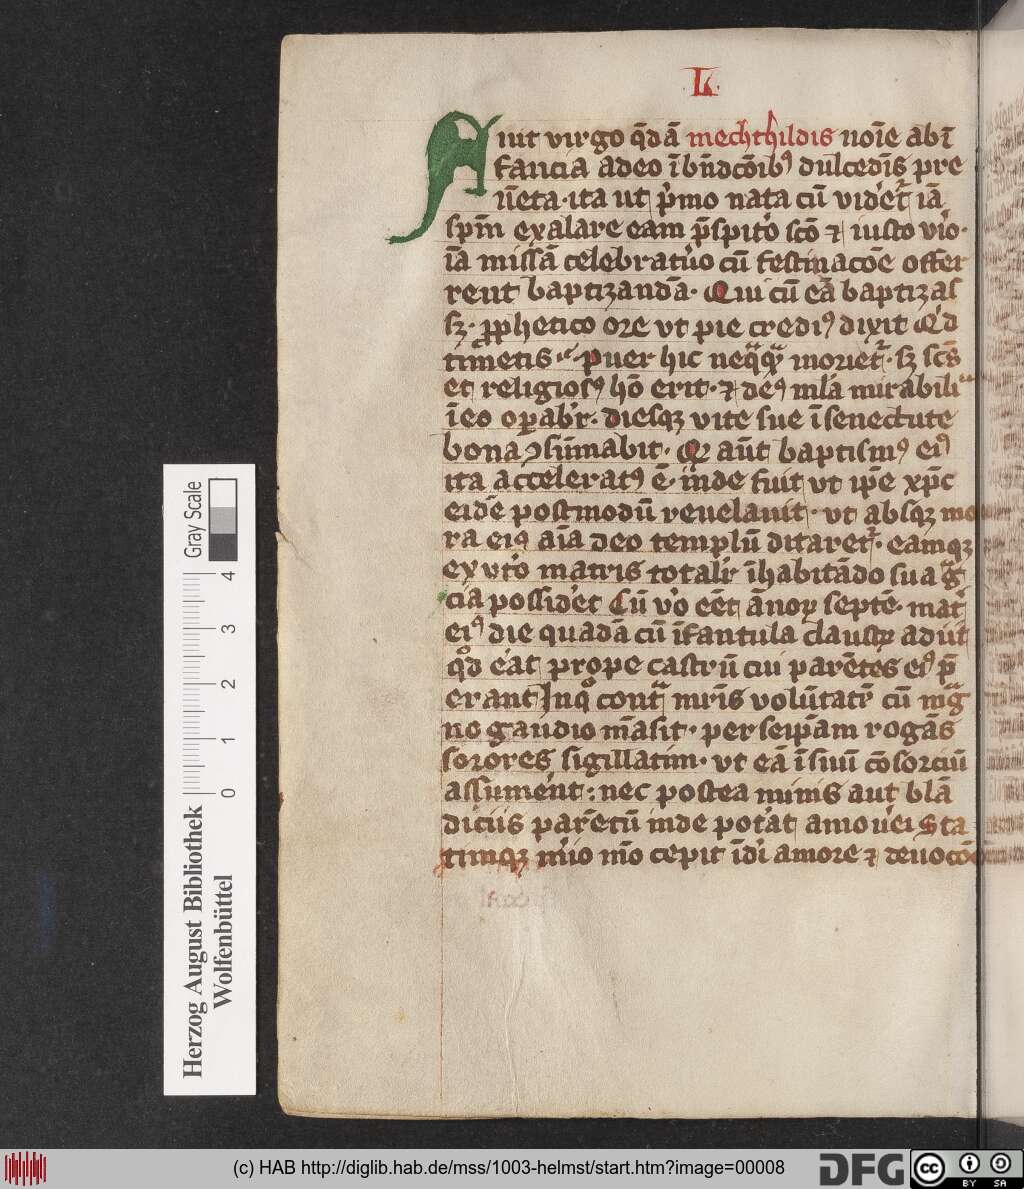 L
Fuit virgo q̄dā mechthildis noīe ab ī
fancia adeo ī bn̄dcōib⁹ dulcedīs pre
uēta · ita ut p̄mo nata cū videret᷑ iā
spm̄ exalare eam p̄spit̓o scō ⁊ iusto viro ·
iā missā celebratūo cū festinacōe offer
rent baptizandā · Qui cū eā baptizas
sꝫ · ꝓphetico ore vt pie credi⁹ dixit Qͥd
timetis · puer hic neq̄q̄ moriet᷑ · sꝫ scūs
et religios⁹ hō erit · ⁊ de⁹ ml̄a mirabilia
ī eo oꝑabr̄ · diesqꝫ vite sue ī senectute
bona ꝯsūmabit · Qꝛ aūt baptism⁹ ei⁹
ita accelerat⁹ ē · inde fuit vt ip̄e xp̄c
eidē postmodū reuelauit · vt absqꝫ mo
ra ei⁹ aīa deo templū ditaret᷑ · eamqꝫ
ex vt̓o matris totalr̄ īhabitādo sua gͣ
cia possideret Cū vͦo eēt ānoꝝ septē · mat̓
ei⁹ die quadā cū īfantula claustꝝ adiit
qͦd erat prope castrū cui parētes ei⁹ p̄
erant Inqͦ contͣ mr̄is volūtatē cū mͣg
no gaudio māsit · per seip̄am rogās
sorores sigillatim · vt eā ī suū cōsorciū
assumerent : nec postea minis aut blā
diciis parētū inde pot̓at amoueri Sta
timqꝫ miro mō cepit ī dī amore ⁊ deuocōe
Herzog August Bibliothek
Wolfenbüttel
0 1 2 3 4
Gray Scale
(c) HAB http://diglib.hab.de/mss/1003-helmst/start.htm?image=00008
DFG
cc BY SA